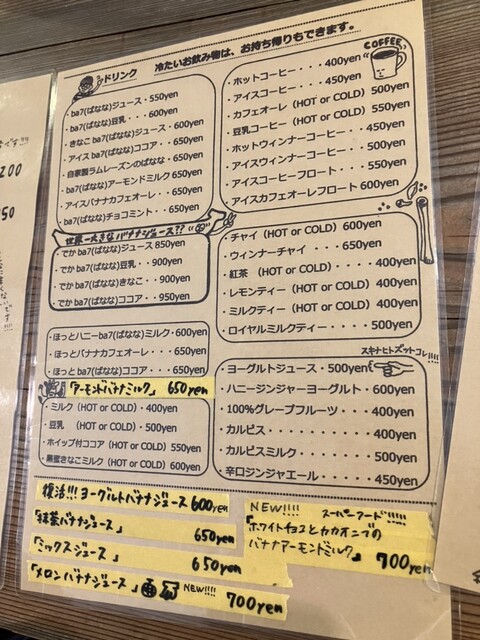 冷たいお飲み物は、お持ち帰りもできます。
ドリンク
・ba7(ばなな)ジュース・550yen
・ba7(ばなな)豆乳・・・600yen
・きなこ ba7(ばなな)ジュース・600yen
・アイス ba7(ばなな)ココア・・650yen
・自家製ラムレーズンのばなな・650yen
・ba7(ばなな)アーモンドミルク 650yen
・アイスバナナカフェオーレ・・650yen
・ba7(ばなな)チョコミント・・650yen
世界一大きなバナナジュース??
・でか ba7(ばなな)ジュース 850yen
・でか ba7(ばなな)豆乳・・900yen
・でか ba7(ばなな)きなこ・・900yen
・でか ba7(ばなな)ココア・・950yen
・ほっとハニーba7(ばなな)ミルク・600yen
・ほっとバナナカフェオーレ・・・650yen
・ほっとba7(ばなな)ココア・・・650yen
「アーモンドバナナミルク」 650yen
・ミルク (HOT or COLD)・400yen
・豆乳 (HOT or COLD)・500yen
・ホイップ付ココア (HOT or COLD) 550yen
・黒蜜きなこミルク (HOT or COLD) 600yen
COFFEE
・ホットコーヒー・・・・400yen
・アイスコーヒー・・・・450yen
・カフェオーレ (HOT or COLD) 500yen
・豆乳コーヒー (HOT or COLD) 550yen
・ホットウィンナーコーヒー・・450yen
・アイスウィンナーコーヒー・・500yen
・アイスコーヒーフロート・・・550yen
・アイスカフェオーレフロート 600yen
・チャイ (HOT or COLD) 600yen
・ウィンナーチャイ・・・650yen
・紅茶 (HOT or COLD)・・・・400yen
・レモンティー (HOT or COLD)・400yen
・ミルクティー (HOT or COLD)・400yen
・ロイヤルミルクティー・・・・・500yen
スキナヒトズットコレ!!!!
・ヨーグルトジュース・500yen
・ハニージンジャーヨーグルト・・600yen
・100%グレープフルーツ・・・400yen
・カルピス・・・・・・・・・400yen
・カルピスミルク・・・・・・500yen
・辛口ジンジャエール・・・・450yen
復活!!! ヨーグルトバナナジュース 600yen
「抹茶バナナジュース」 650yen
「ミックスジュース」 650yen
「メロンバナナジュース」 NEW!!!! 700yen
NEW!!!! スーパーフード!!!!!
「ホワイトチョコとカカオニブの
バナナアーモンドミルク」 700yen